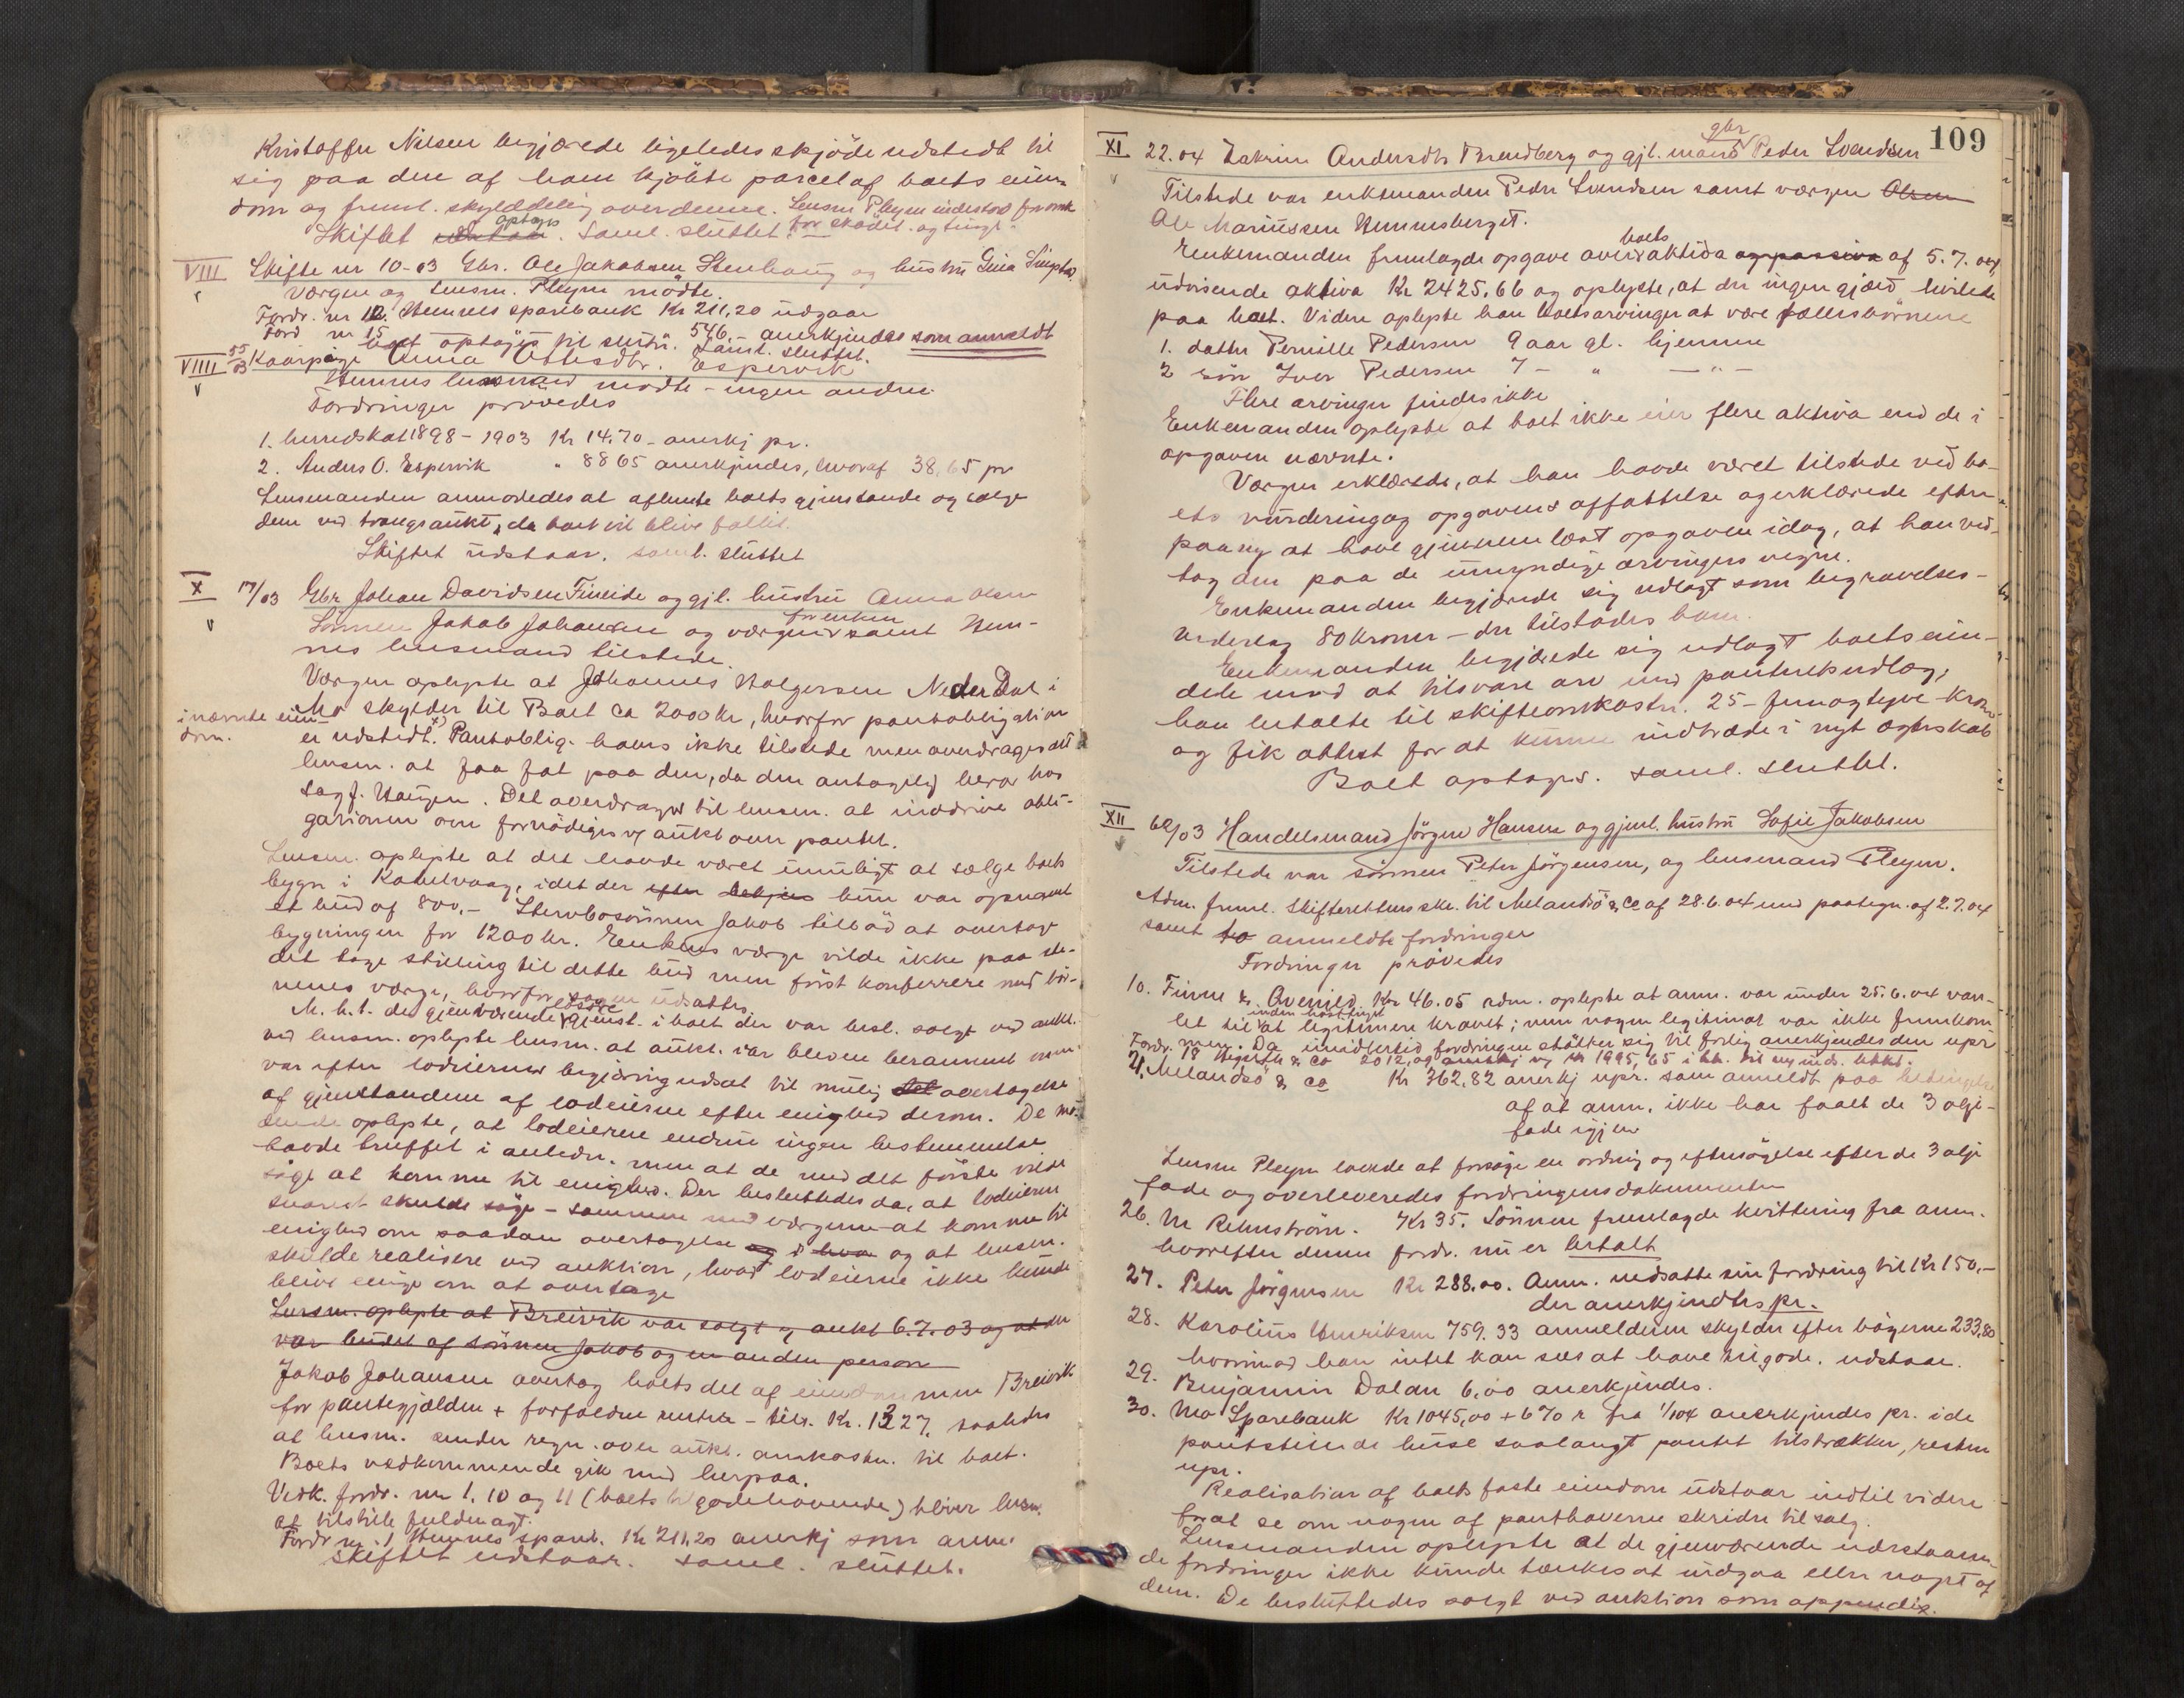 Kristoffer Nilsen begjærede ligeledes skjöde udstedt til
sig paa den af ham kjöbte parcel af boets eien-
dom og freml. skylddeling over denne. Lensm Pleym indestod for omk
for sködet. og tingl.
Skiftet udstaar optages. Saml. sluttet.
VIII Skifte nr 10-03 Gbr. Ole Jakobsen Stenhaug og hustru Gina
Værgen og lensm. Pleym mödte.
Fordr. nr 12. Hemnes sparebank Kr 211,20 udgaar
Ford nr 15 546, anerkjendes som anmeldt
Boet optages til slutn. Saml. sluttet.
VIIII 55/03 Kaarpige Anna Ottesdtr. Espervik
Hemnes lensmand mödte - ingen andre.
Fordringer prövedes
1. herredskat 1898 - 1903 Kr 14.70 - anerkj pr.
2. Anders O. Espervik " 88 65 anerkjendes, hvoraf 38,65 pr
Lensmanden anmodedes at afhente boets gjenstande og sælge
dem ved tvangsaukt, da boet vil blive fallit.
Skiftet udstaar. saml. sluttet
X 17/03 Gbr Johan Davidsen Fineide og gjl. hustru Anna Olsen
Sönnen Jakob Johansen og værgen for enken samt Hem-
nes lensmand tilstede.
Værgen oplyste at Johannes Holgersen Neder Dal i
Mo skylder til Boet ca 2000 kr, hvorfor pantobligation
i nævnte eien-
dom.
er udstedt. x) Pantoblig. haves ikke tilstede men overdrages det
lensm. at faa fat paa den, da den antagelig beror hos
sagf. Haugen. Det overdrages til lensm. at inddrive obli-
gationen om fornödiges v/ aukt over pantet.
Lensm. oplyste at det havde været umuligt at sælge boets
bygn i Kabelvaag, idet der efter kun var opnaaet
et bud af 800,- Stervbosönnen Jakob tilböd at overtage
bygningen for 1200 kr. Enkens værge vilde ikke paa ste-
det tage stilling til dette bud men först konferrere med bör-
nenes værge, hvorfor sagen udsattes.
M. h. t. de gjenværende lösöre gjenst. i boet der var besl. solgt ved aukt.
ved lensm. oplyste lensm. at aukt. i var bleven berammet men
var efter lodeiernes begjæring udsat til mulig overtagelse
af gjenstandene af lodeierne efter enighed derom. De mö-
dende oplyste, at lodeierne endnu ingen bestemmelse
havde truffet i anledn. men at de med det förste vilde
söge at komme til enighed. Der besluttedes da, at lodeierne
snarest skulde söge - sammen med værgerne at komme til
enighed om saadan overtagelse og at lensm.
skulde realisere ved auktion, hvad lodeierne ikke kunde
blive enige om at overtage
Lensm. oplyste at Breivik var solgt v/ aukt 6.7.03 og at den
var budet af sönnen Jakob og en anden person
Jakob Johansen overtog boets del af eiendommen Breivik
for pantegjælden + forfaldne renter - tils. Kr. 1327, saaledes
at lensm. sender regn. over aukt. omkostn. til boet.
Boets vedkommende gik med herpaa.
Vedk. fordr. nr 1. 10 og 11 (boets tilgodehavende) bliver lensm.
at tilstille fuldmagt.
Fordr nr. 1 Hemnes spareb. Kr 211,20 anerkj som anm.
Skiftet udstaar. saml. sluttet.
109
XI 22.04 Zakrine Andersdtr Brendberg og gjl. mand gbr Peder Svendsen
Tilstede var enkemanden Peder Svendsen samt værgen Olsen
Ole Mariussen Hemnesberget.
Enkemanden fremlagde opgave over boets aktiva og passiva af 5.7.04
udvisende aktiva Kr 2425.66 og oplyste, at der ingen gjæld hvilede
paa boet. Videre oplyste han boets arvinger at være fællesbörnene
1. datter Pernille Pedersen 9 aar gl. hjemme
2 sön Iver Pedersen 7 - " - " -
Flere arvinger findes ikke
Enkemanden oplyste at boet ikke eier flere aktiva end de i
opgaven nævnte.
Værgen erklærede, at han havde været tilstede ved bo-
ets vurdering og opgavens affattelse og erklærede efter
paany at have gjennemlæst opgaven idag, at han ved-
tog den paa de umyndige arvingers vegne.
Enkemanden begjærede sig udlagt som begravelses-
vederlag 80 kroner - der tilstodes ham.
Enkemanden begjærede sig udlagt boets eien-
dele mod at tilsvare arv med panteretsudlæg,
han betalte til skifteomkostn. 25 - femogtyve kroner
og fik attest for at kunne indtræde i nyt ægteskab
Boet optages. saml. sluttet.
XII 62/03 Handelsmand Jörgen Hansen og gjenl. hustru Sofie Jakobsen
Tilstede var sönnen Peter Jörgensen, og lensmand Pleym.
Adm. freml. skifterettens skr. til Melandsö & Co af 28.6.04 med paategn. af 2.7.04
samt to anmeldte fordringer
Fordringer prövedes
10. Finne & Kr 46.05 adm. oplyste at anm. var under 25.6.04 vars-
let til inden at legitimere kravet; men nogen legitimat var ikke fremkom
men. Da imidlertid fordringen stötter sig til forlig anerkjendes den upr
Fordr. 18 & Co 2012, og 1995,65
21. Melandsö & Co Kr 362,82 anerkj upr. som anmeldt paa betingelse
af at anm. ikke har faaet de 3 olje-
fade igjen
Lensm Pleym lovede at forsöge en ordning og eftersögelse efter de 3 olje
fade og overleveredes fordringens dokumenter
26. M Rehnström. Kr 35. Sönnen fremlagde kvittering fra anm.
hvorefter denne fordr. nu er betalt
27. Peter Jörgensen Kr 288.00. Anm. nedsatte sin fordring til Kr 150,-
der anerkjendtes pr.
28. Karolius Henriksen 759.33 anmelderen skylder efter bögerne 233,80
hvorimod han intet kan sees at have tilgode. udstaar.
29. Benjamin Dalan 6,00 anerkjendes.
30. Mo Sparebank Kr 1045,00 + 6% r fra 1/1 04 anerkjendes pr. i de
pantstillede huse saalangt pantet tilstrækker, resten
upr.
Realisation af boets faste eiendom udstaar indtil videre
for at se om nogen af panthaverne skrider til salg.
Lensmanden oplyste at de gjenværende udestaaen-
de fordringer ikke kunde tænkes at indgaa eller noget af
dem. De besluttedes solgt ved auktion som appendix.